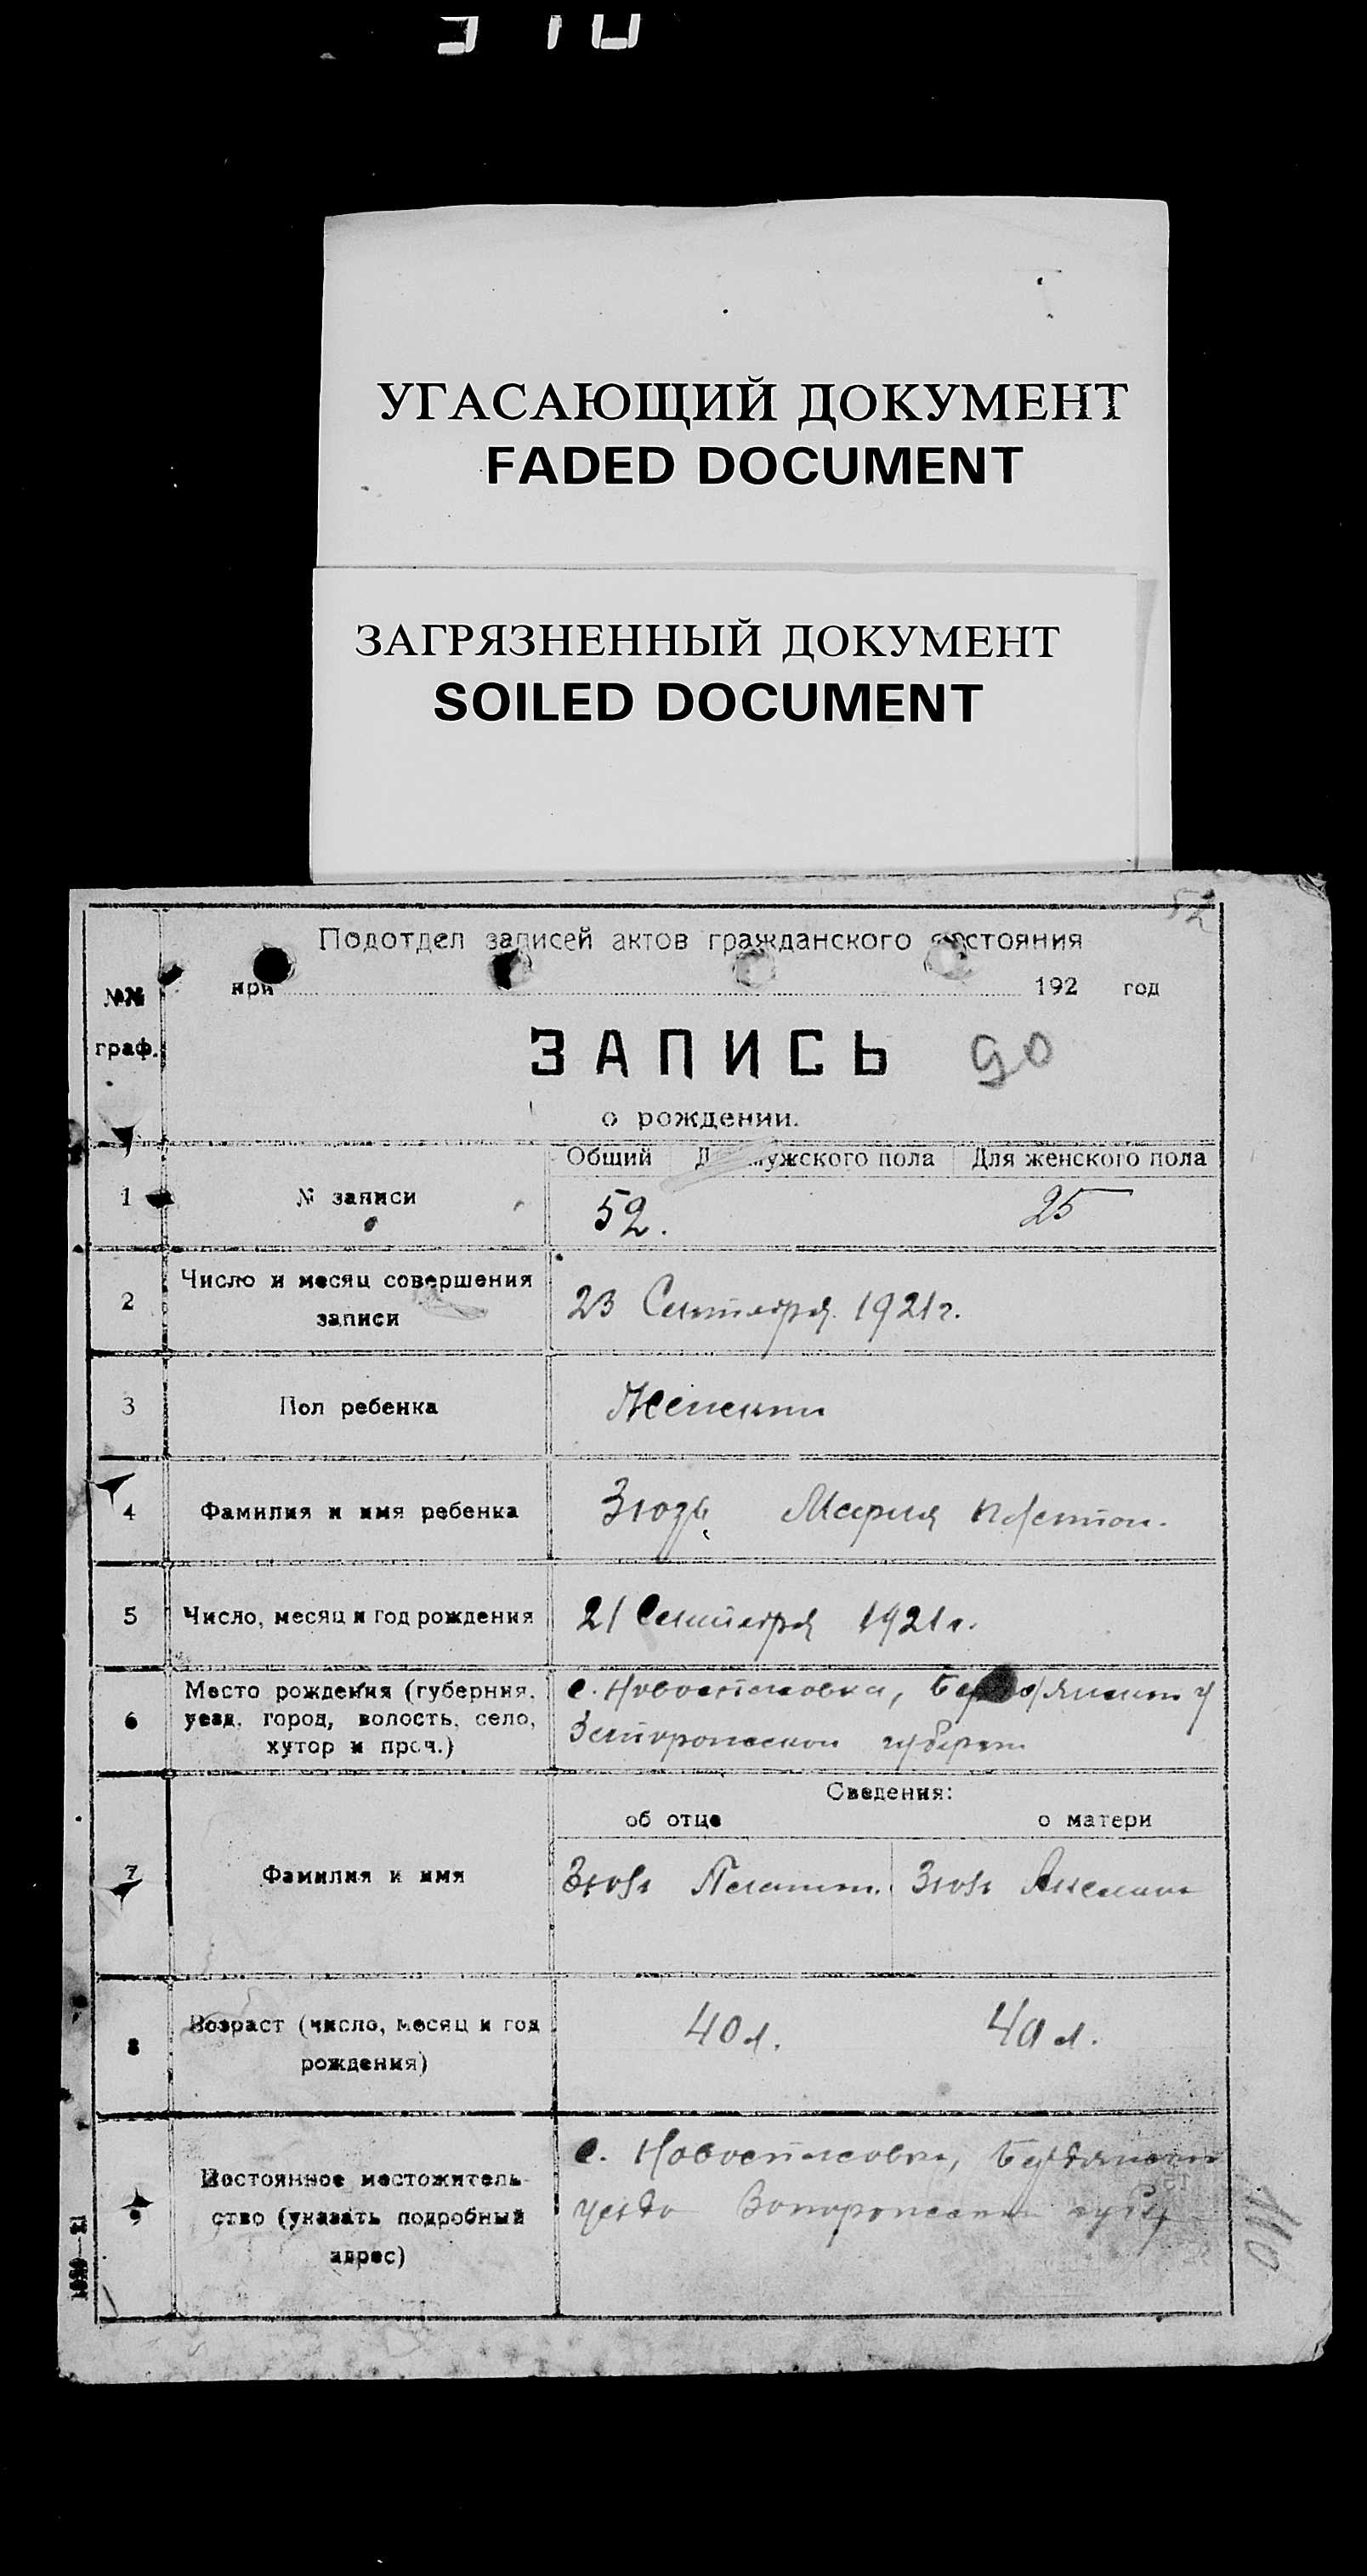 УГАСАЮЩИЙ ДОКУМЕНТ
FADED DOCUMENT
ЗАГРЯЗНЕННЫЙ ДОКУМЕНТ
SOILED DOCUMENT
52
Подотдел записей актов гражданского состояния
при 192 год
№№
граф.
ЗАПИСЬ 90
о рождении.
Общий Для мужского пола Для женского пола
1 № записи 52. 25
2 Число и месяц совершения
записи
23 Сентября 1921 г.
3 Пол ребенка
4 Фамилия и имя ребенка Мария
5 Число, месяц и год рождения 21 Сентября 1921 г.
6 Место рождения (губерния,
уезд, город, волость, село,
хутор и проч.)
с. Новоспасовка,
Сведения:
об отце о матери
7 Фамилия и имя
8 Возраст (число, месяц и год
рождения)
40 л. 40 л.
9 Постоянное местожитель-
ство (указать подробный
адрес)
с. Новоспасовка,
уезда